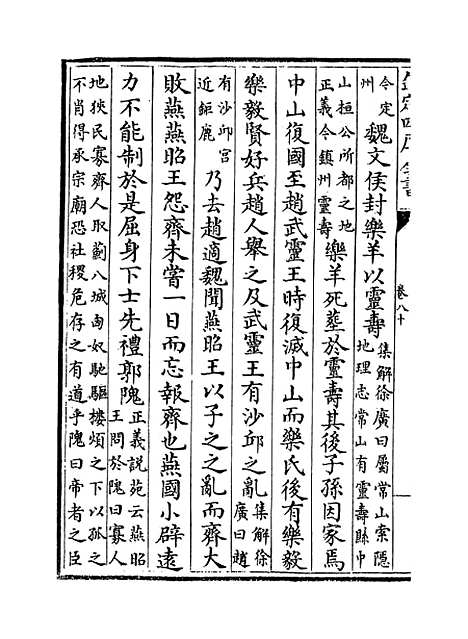 欽定四庫全書
卷八十
今定
州
魏文侯封樂羊以靈壽
集解徐廣曰屬常山索隱
地理志常山有靈壽縣中
山桓公所都之地
正義今鎮州靈壽
樂羊死葬於靈壽其後子孫因家焉
中山復國至趙武靈王時復滅中山而樂氏後有樂毅
樂毅賢好兵趙人舉之及武靈王有沙邱之亂
集解徐
廣曰趙
有沙邱宮
近鉅鹿
乃去趙適魏聞燕昭王以子之之亂而齊大
敗燕燕昭王怨齊未嘗一日而忘報齊也燕國小辟遠
力不能制於是屈身下士先禮郭隗
正義說苑云燕昭
王問於隗曰寡人
地狹民寡齊人取薊八城匈奴馳驅樓煩之下以孤之
不肖得承宗廟恐社稷危存之有道乎隗曰帝者之臣